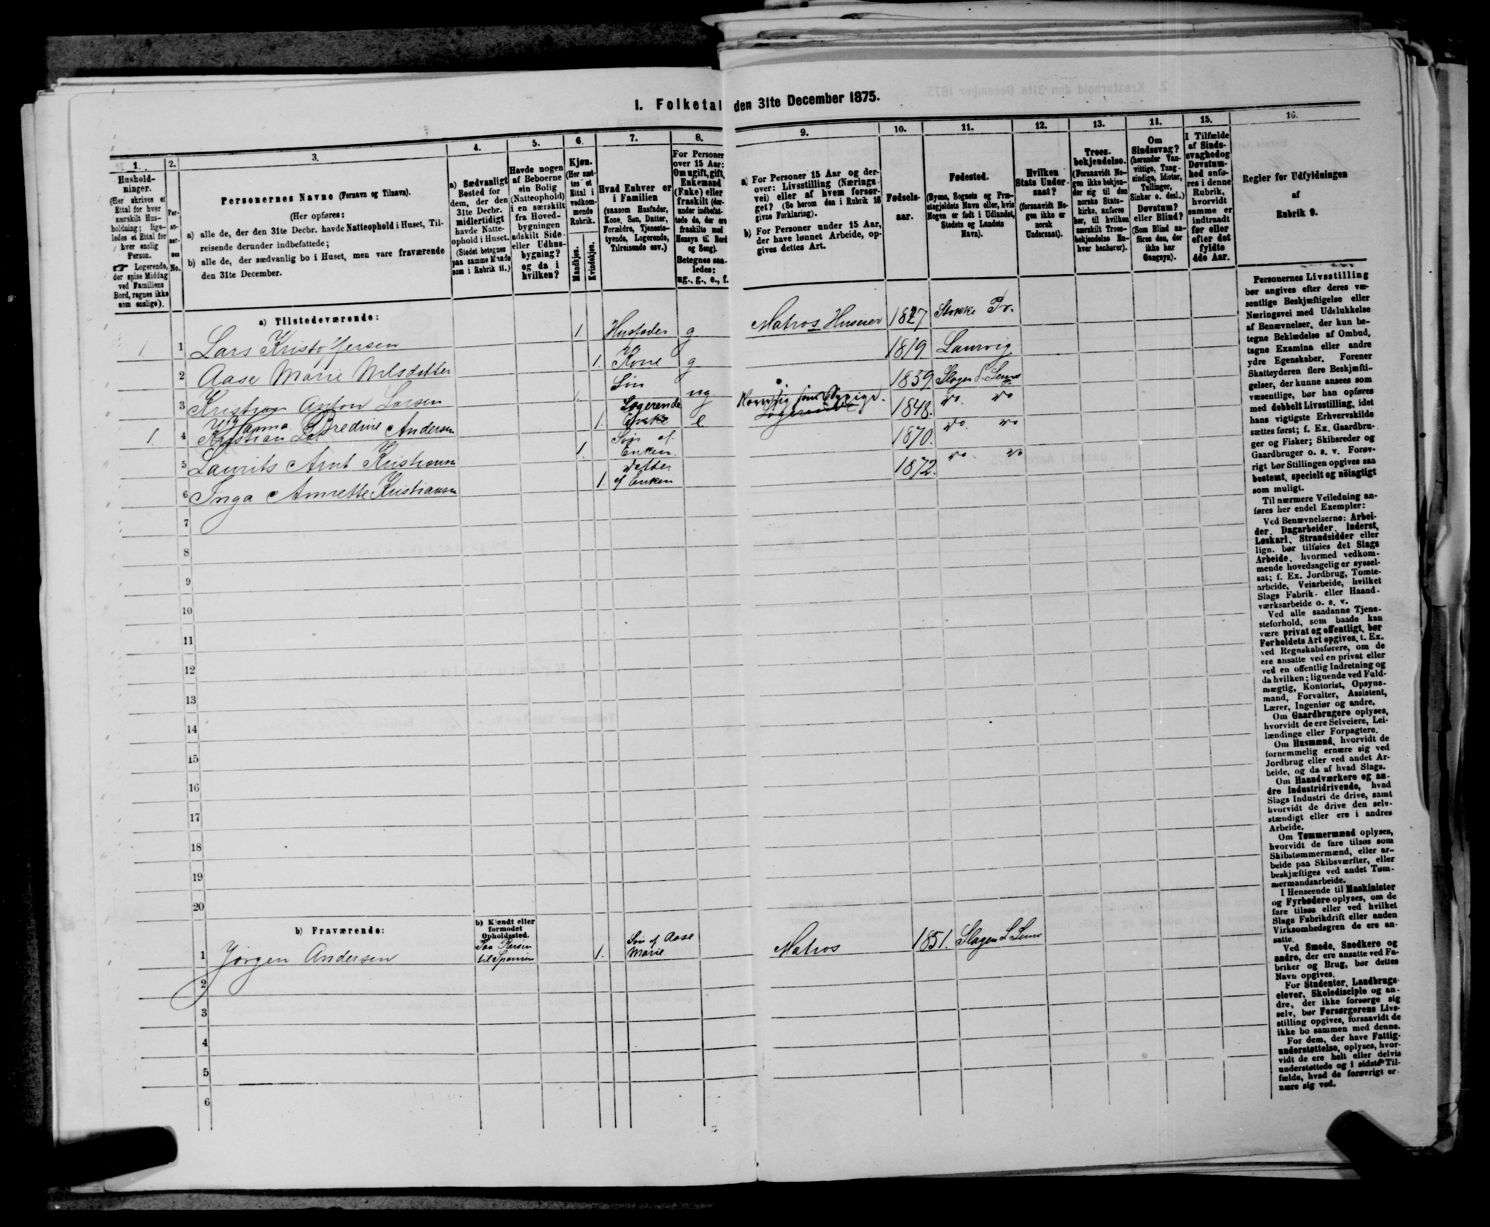 I. Folketal den 31te December 1875.
1. 2. 3. 4. 5. 6. 7. 8. 9. 10. 11. 12. 13. 14. 15. 16.
Hushold-
ninger.
(Her skrives et
Ettal for hver
særskilt Hus-
holdning; lige-
ledes et Ettal for
hver enslig
Person.
☞ Logerende,
der spise Middag
ved Familiens
Bord, regnes ikke
som enslige).
Personernes No.
Personernes Navne (Fornavn og Tilnavn).
(Her opføres:
a) alle de, der den 31te Decbr. havde Natteophold i Huset, Til-
reisende derunder indbefattede;
b) alle de, der sædvanlig bo i Huset, men vare fraværende
den 31te December.
a) Sædvanligt
Bosted for
dem, der den
31te Decbr.
midlertidigt
havde Natte-
ophold i Huset.
(Stedet betegnes
paa samme Maade
som i Rubrik 11.)
Havde nogen
af Beboerne
sin Bolig
(Natteophold)
i en særskilt
fra Hoved-
bygningen
adskilt Side-
eller Udhus-
bygning?
og da i
hvilken?
Kjøn.
(Her sæt-
tes et
Ettal i
vedkom-
mende
Rubrik.
Mandkjøn. Kvindekjøn.
Hvad Enhver er
i Familien
(saasom Husfader,
Kone, Søn, Datter,
Forældre, Tjeneste-
tyende, Logerende,
Tilreisende osv.)
For Personer
over 15 Aar:
Om ugift, gift,
Enkemand
(Enke) eller
fraskilt (der-
under indbefat-
tede de, der ere
fraskilte med
Hensyn til Bord
og Seng).
Betegnes saa-
ledes:
ug., g., e., f.
a) For Personer 15 Aar og der-
over: Livsstilling (Nærings-
vei) eller af hvem forsør-
get? (Se herom den i Rubrik 16
givne Forklaring).
b) For Personer under 15 Aar,
der have lønnet Arbeide, op-
gives dettes Art.
Fødsels-
aar.
Fødested.
(Byens, Sognets og Præ-
stegjeldets Navn eller, hvis
Nogen er født i Udlandet,
Stedets og Landets
Navn).
Hvilken
Stats Under-
saat?
(forsaavidt No-
gen ikke er
norsk
Undersaat).
Troes-
bekjendelse.
(Forsaavidt No-
gen ikke bekjen-
der sig til den
norske Stats-
kirke, anføres
her, til hvilken
særskilt Troes-
bekjendelse En-
hver henhører).
Om
Sindssvag?
(herunder Van-
vittige, Tung-
sindige, Idioter,
Tullinger,
Sinker o. desl.)
Døvstum?
eller Blind?
(Som Blind an-
føres den, der
ikke har
Gangsyn).
I Tilfælde
af Sinds-
svaghed og
Døvstum-
hed anfø-
res i denne
Rubrik,
hvorvidt
samme er
indtraadt
før eller
efter det
fyldte
4de Aar.
Regler for Udfyldningen
af
Rubrik 9.
a) Tilstedeværende:
1 1 Lars Kristofersen 1 Husfader g Matros Huseier 1827 Stokke Pr.
2 Aase Marie Nilsdatter 1. Kone g 1819 Laurvig
3 Kristian Anton Larsen 1 Søn ug 1839 Slagen S. Sems
1. 4 Hanna Bredine Andersen 1 Logerende Enke e 1848. Do Do
5 Laurits Arnt Kristiansen 1. Søn af Enken 1870. Do. Do
6 Inga Annette Kristiansen 1. Datter af Enken 1872. Do Do
7
8
9
10
11
12
13
14
15
16
17
18
19
20
b) Fraværende:
b) Kjendt eller
formodet
Opholdssted.
1 Jørgen Andersen Paa Reisen til Spanien 1. Søn af Aase Marie Matros 1851. Slagen S Sems
2
3
4
5
6
Personernes Livsstilling
bør angives efter deres væ-
sentlige Beskjæftigelse eller
Næringsvei med Udelukkelse
af Benævnelser, der kun be-
tegne Beklædelse af Ombud,
tagne Examina eller andre
ydre Egenskaber. Forener
Skatteyderen flere Beskjæfti-
gelser, der kunne ansees som
væsentlige, bør han opføres
med dobbelt Livsstilling, idet
hans vigtigste Erhvervskilde
sættes først; f. Ex. Gaardbru-
ger og Fisker; Skibsreder og
Gaardbruger o. s. v. Forøv-
rigt bør Stillingen opgives saa
bestemt, specielt og nøiagtigt
som muligt.
Til nærmere Veiledning an-
føres her endel Exempler:
Ved Benævnelserne: Arbei-
der, Dagarbeider, Inderst,
Løskarl, Strandsidder eller
lign. bør tilføies det Slags
Arbeide, hvormed vedkom-
mende hovedsagelig er syssel-
sat; f. Ex. Jordbrug, Tomte-
arbeide, Veiarbeide, hvilket
Slags Fabrik- eller Haand-
værksarbeide o. s. v.
Ved alle saadanne Tjene-
steforhold, som baade kan
være privat og offentligt, bør
Forholdets Art opgives, t. Ex.
ved Regnskabsførere, om de
ere ansatte ved en privat eller
ved en offentlig Indretning og
da hvilken; lignende ved Fuld-
mægtig, Kontorist, Opsyns-
mand, Forvalter, Assistent,
Lærer, Ingeniør og andre.
Om Gaardbrugere oplyses,
hvorvidt de ere Selveiere, Lei-
lændinge eller Forpagtere.
Om Husmænd, hvorvidt de
fornemmelig ernære sig ved
Jordbrug eller ved andet Ar-
beide, og da af hvad Slags.
Om Haandværkere og an-
dre Industridrivende, hvad
Slags Industri de drive, samt
hvorvidt de drive den selv-
stændigt eller ere i andres
Arbeide.
Om Tømmermænd oplyses,
hvorvidt de fare tilsøs som
Skibstømmermænd, eller ar-
beide paa Skibsværfter, eller
beskjæftiges ved andet Tøm-
mermandsarbeide.
I Henseende til Maskinister
og Fyrbødere oplyses, om de
fare tilsøs eller ved hvilket
Slags Fabrikdrift eller anden
Virksomhedsgren de ere an-
satte.
Ved Smede, Snedkere og
andre, der ere ansatte ved Fa-
briker og Brug, bør dettes
Navn opgives.
For Studenter, Landbrugs-
elever, Skoledisciple og an-
dre, der ikke forsørge sig
selv, bør Forsørgerens Livs-
stilling opgives, forsaavidt de
ikke bo sammen med denne.
For dem, der have Fattig-
understøttelse, oplyses, hvor-
vidt de ere helt eller delvis
understøttede og i sidste Til-
fælde, hvad de forøvrigt er-
nære sig ved.